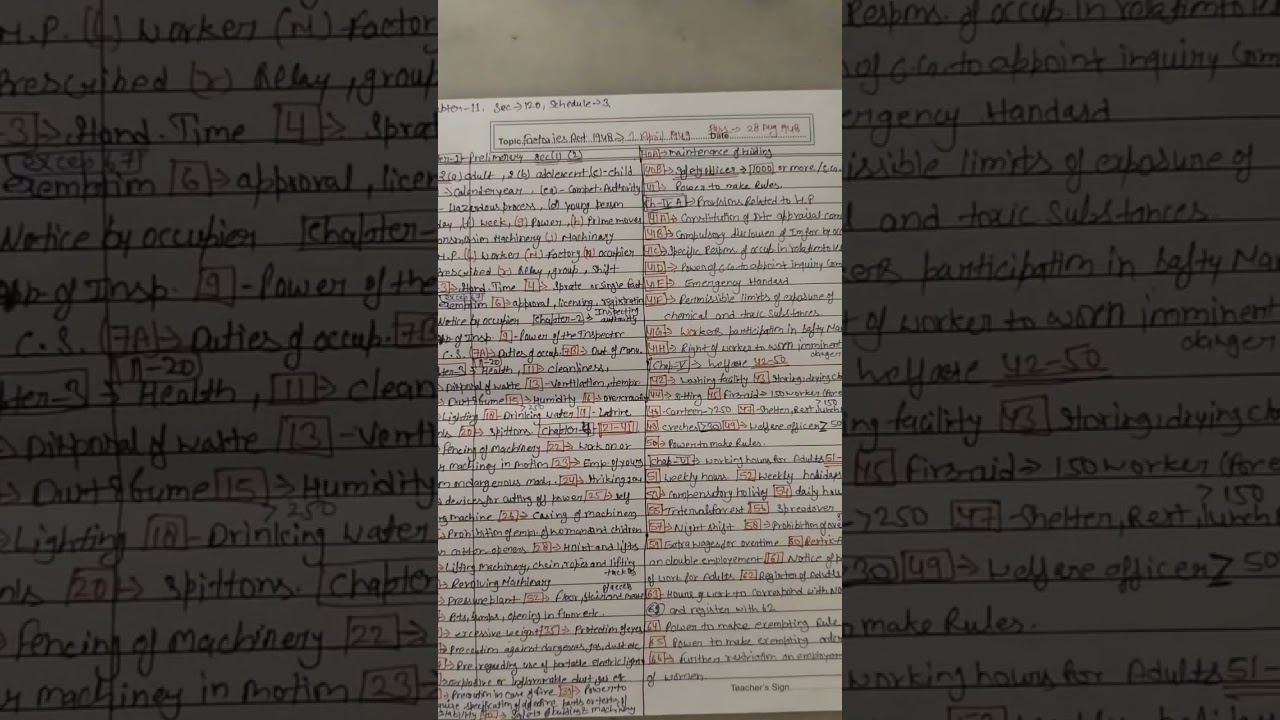 pter-11. Sec→120, Schedule→3
Topic Factories Act 1948→ 1 April 1949 Date
Pass→ 28 Aug 1948
er-1→ Prelimenery sec(1)(2)
2(a) adult, 2(b) adolescent (c)-child
→Calender year, (ea)- Compet. Authority
- Hazardous process, (d) young person
ay, (f) week, (g) Power, (h) Prime moves
Machinery (j) Machinery
H.P. (l) Worker (m) Factory (n) occupier
rescribed (r) Relay, group, shift
3→ Hand. Time [4]→ Sprate or single fact
excep 67
exemptim [6]→ approval, licensing, registration
Notice by occupier [Chapter-2]→ Inspecting authority
of Insp. [9]-Power of the Inspector
C.S. [7A]→ Duties of occup. [7B]→ Out of Manu.
(11-20)
ter-3→ Health, [11]→ cleanliness,
Disposal of waste [13]-Ventilation, tempr
→ Dust & fume [15]→ Humidity [16]→ overcrowd
>250
Lighting [18]-Drinking water [19]- Latrine
[20]→ Spittons. [Chapter-4]→ [21-41]
Fencing of machinery [22]→ work on or
machinery in motion [23]→ Emp. of young
on dangerous mach. [24]→ Striking gea
devices for cutting off power [25]→ self
machine [26]→ Casing of machinery
→Prohibition of emp. of woman and chidren
cotton openers [28]→ Hoist and lifts
Lifting machinery, chain ropes and lifting tackles
→ Revolving Machinary
Pressure plant [32]→ Floor, stair and
Pits, sumps, opening in floor etc.
→ excessive weight [35]→ Protection of eyes
Precaution against dangerous, gas, dust etc
Pre. regarding use of portable electric light
explosive or inflammable dust, gas etc
→ Precaution in case of fire [39]→ Power to
quire specification of defective parts or test of
stability [40]→ Safety of building & machinery
[40A]→ maintenance of bulding
[40B]→ Safety officer → [1000] or more
[41]→ Power to make Rules.
[Ch-IV A]→ Provisions Related to H.P
[41A]→ Constitution of site appraisal com
[41B]→ Compulsory disclouser of Infor by oc
[41C]→ Specific Respns. of occup. In relation to
[41D]→ Power of C.G. to appoint inquiry Com
[41E]→ Emergency Standard
[41F]→ Permissible limits of exposure of
chemical and toxic substances
[41G]→ Workers participation in Safty Ma
[41H]→ Right of worker to worn imminent
danger
[Chap-V]→ Welfare 42-50
[42]→ Washing facility [43] Storing, drying cl
[44]→ sitting [45] First aid→ 150 worker (for e
>150
[46]-Canteen→>250 [47]-Shelter, Rest, lunch
[48] creches >30 [49]→ welfare officer ≥ 50
50→ Power to make Rules.
[Chap-VI]→ Working hours for Adults 51-
[51] Weekly hours [52] Weekly holidays
[53]→ Compensatory holiday [54] daily hou
[55]→ Interval for rest [56] Spreadover
[57]→ Night shift [58]→ Prohibition of ove
[59] Extra wages for overtime [60] Restrict
on double employement [61] Notice of p
of work for Adults [62] Register of Adults
[63] Hours of work to Correspond with No
and register with 62
[64] Power to make exempting Rule
[65] Power to make exempting orde
[66]→ Further restriction on employm
of women.
Teacher's Sign